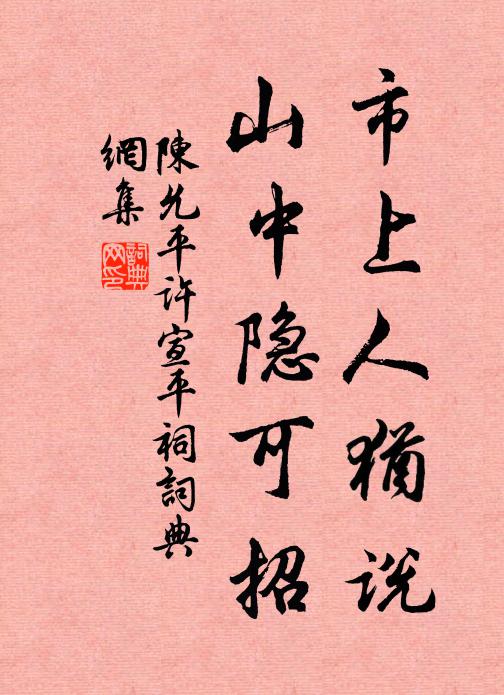 市上人猶说
山中隐可招
陳允平许宣平祠詞典
網集
詞典
网印